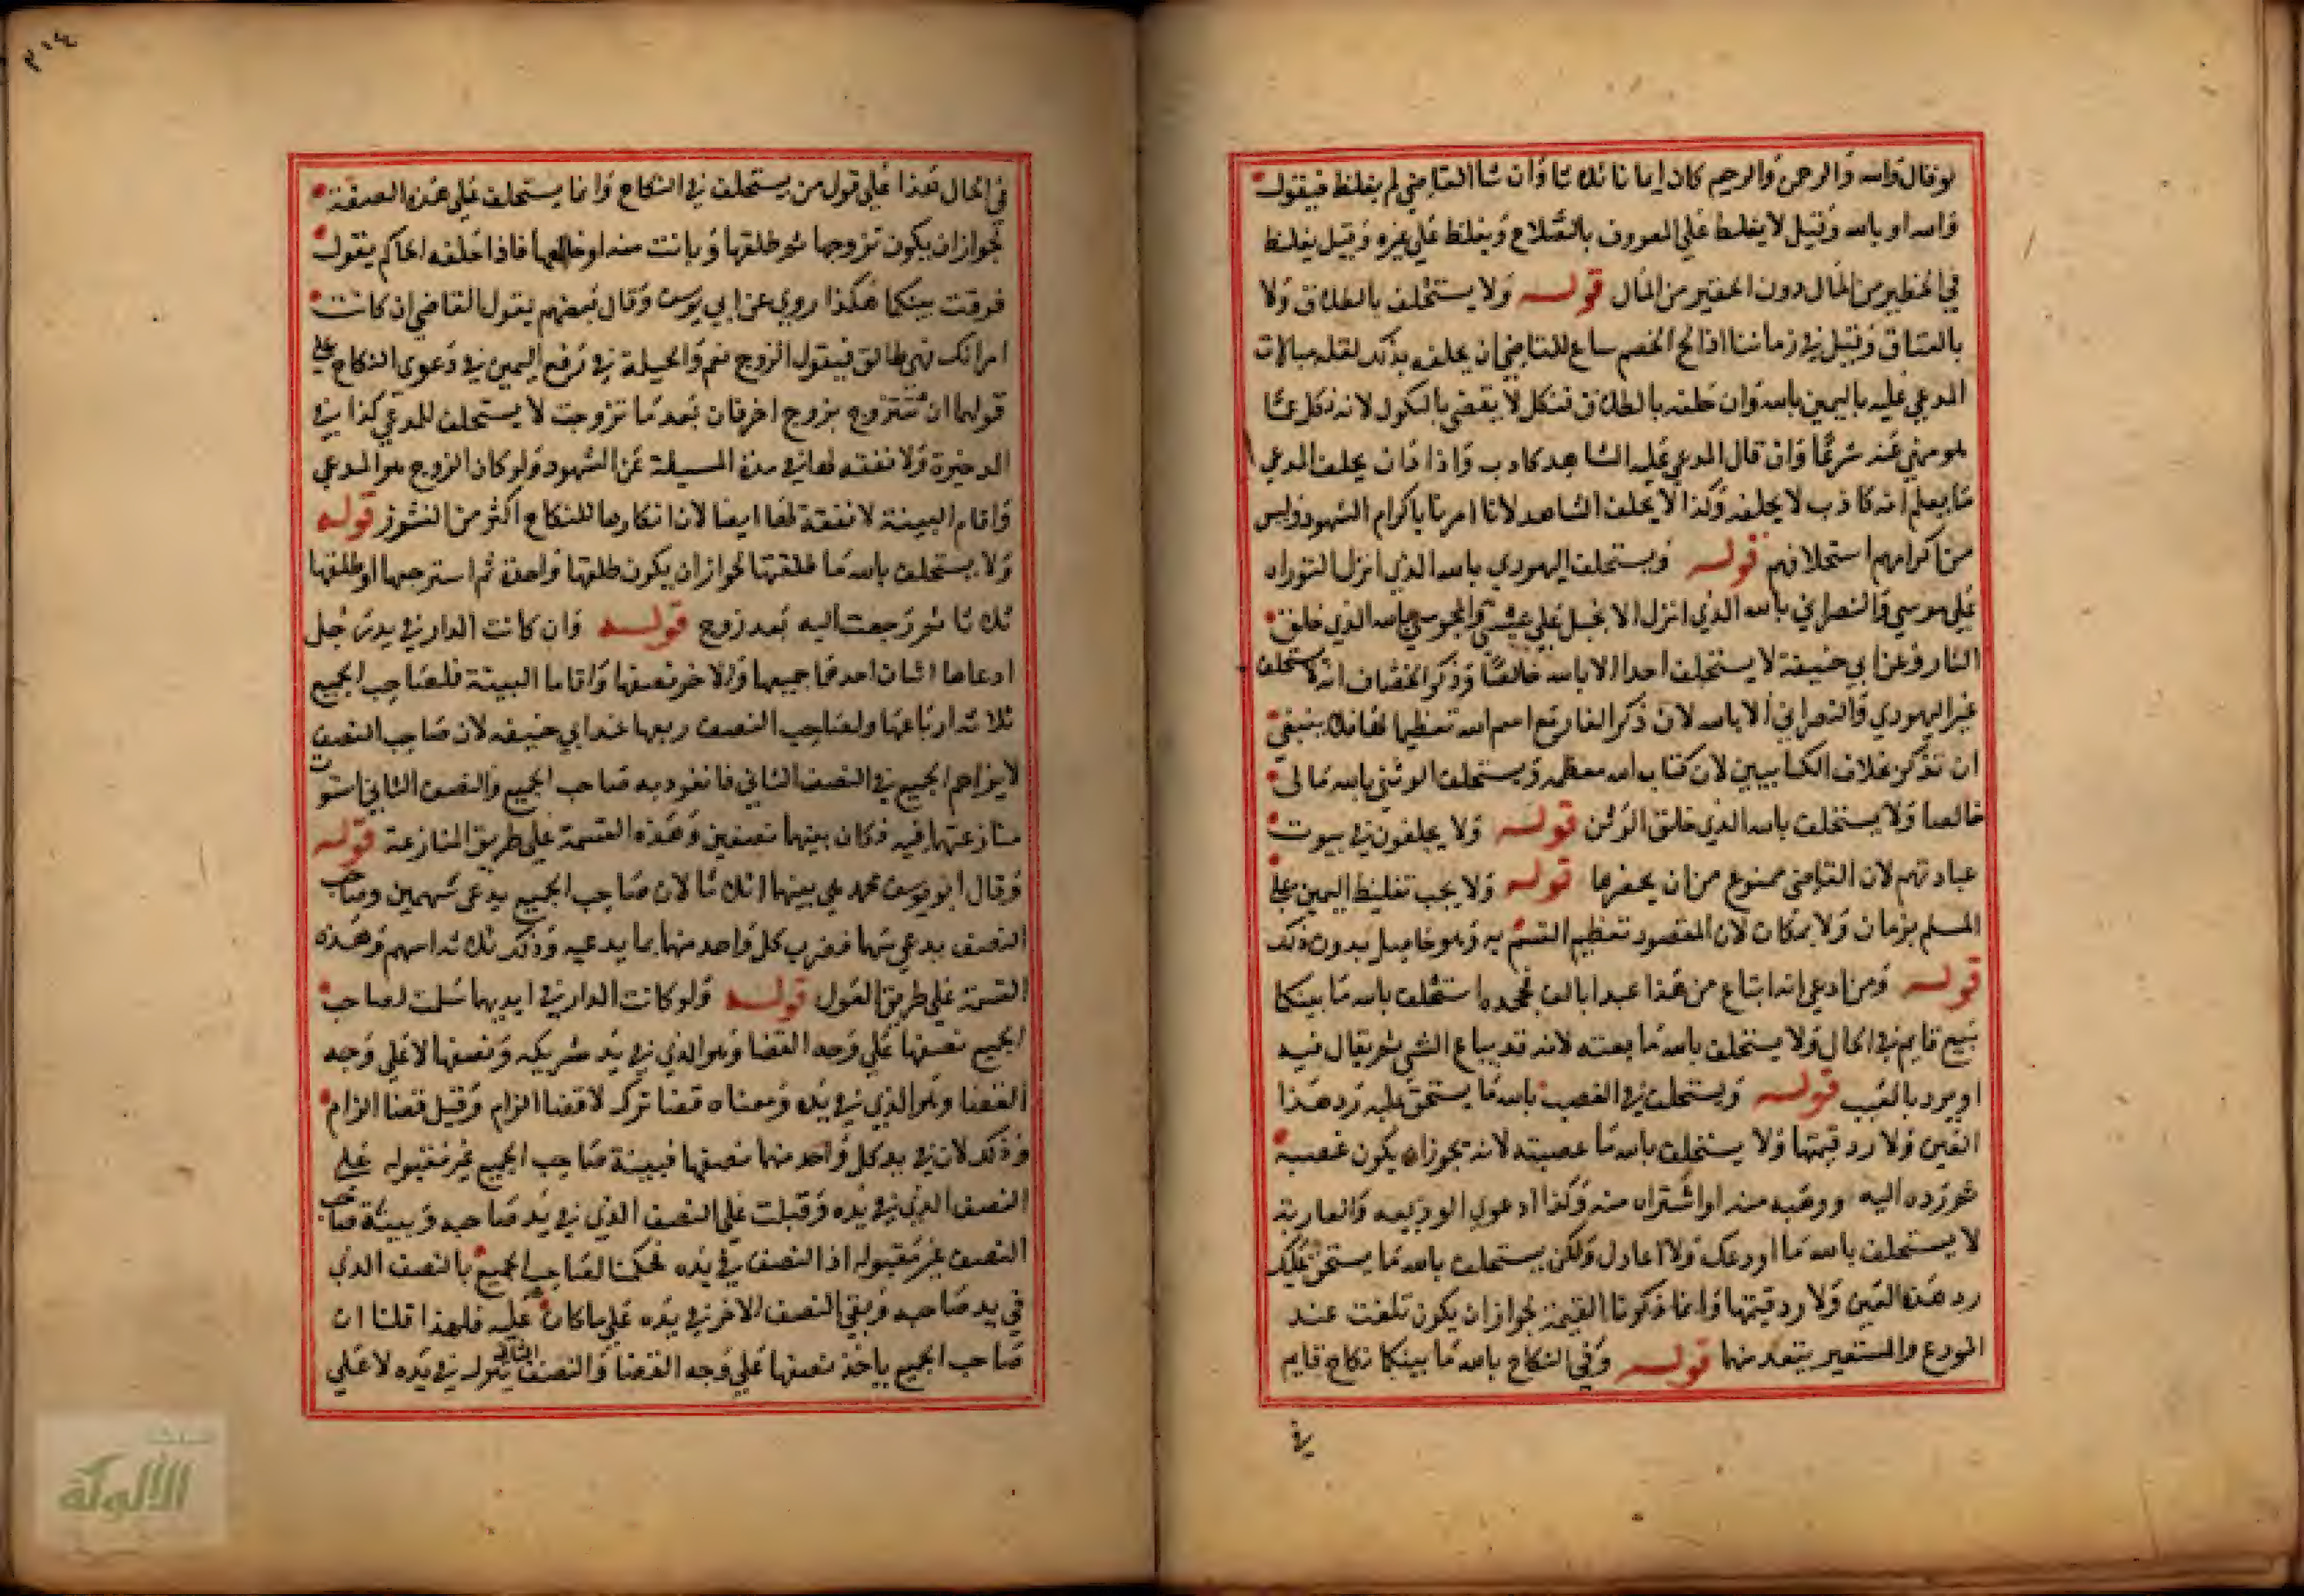 لو قال والله والرحمن والرحيم كان ايمانا ثلاثا وان شا القاضي لم يغلظ فيقول
والله او بالله وقيل لا يغلظ علي المعروف بالصلاح ويغلظ علي غيره وقيل يغلظ
في الخطير من المال دون الحقير من المال قوله ولا يستحلف بالطلاق ولا
بالعتاق وقيل في زماننا اذا لح الخصم ساغ للقاضي ان يحلف بذلك لقلة مبالات
المدعي عليه باليمين بالله وان حلفه بالطلاق فنكل لا يقضي بالنكول لانه نكل عما
هو منهي عنه شرعا وان قال المدعي عليه الشاهد كاذب واذا ان يحلف المدعي
ما يعلم انه كاذب لا يحلفه وكذا لا يحلف الشاهد لانا امرنا باكرام الشهود وليس
من اكرامهم استحلافهم قوله ويستحلف اليهودي بالله الذي انزل التوراه
علي موسي والنصراني بالله الذي انزل الانجيل علي عيسي والمجوسي بالله الذي خلق
النار وعن ابي حنيفة لا يستحلف احدا الا بالله خالصا وذكر الخصاف انه لا يستحلف
غير اليهودي والنصراني الا بالله لان ذكر النار مع اسم الله تعظيما لها فلا ينبغي
ان تذكر بخلاف الكتابيين لان كتاب الله معظم ويستحلف الوثني بالله تعالى
خالصا ولا يستحلف بالله الذي خلق الوثن قوله ولا يحلفون في بيوت
عبادتهم لان القاضي ممنوع من ان يحضرها قوله ولا يجب تغليظ اليمين علي
المسلم بزمان ولا بمكان لان المقصود تعظيم القسم به وهو حاصل بدون ذلك
قوله ومن ادعي انه ابتاع من هذا عبدا بالف فجحده استحلف بالله ما بينكما
بيع قايم في الحال ولا يستحلف بالله ما بعته لانه قد يباع الشي ثم يقال فيه
او يرد بالعيب قوله ويستحلف في الغصب بالله ما يستحق عليه رد هذا
العين ولا رد قيمتها ولا يستحلف بالله ما غصبته لانه يجوز ان يكون غصبه
ثم رده اليه ووهبه منه او اشتراه منه وكذا دعوي الوديعه والعارية
لا يستحلف بالله ما اودعك ولا اعارك ولكن يستحلف بالله ما يستحق عليك
رد هذه العين ولا رد قيمتها وانما ذكرنا القيمة لجواز ان يكون تلفت عند
المودع والمستعير بتعد منهما قوله وفي النكاح بالله ما بينكما نكاح قايم
في
في الحال هذا علي قول من يستحلف في النكاح وانما يستحلف علي هذه الصفة
لجواز ان يكون تزوجها ثم طلقها وبانت منه او خالعها فاذا حلفه الحاكم يقول
فرقت بينكما هكذا روي عن ابي يوسف وقال بعضهم يقول القاضي ان كانت
امراتك فهي طالق فيقول الزوج نعم والحيلة في رفع اليمين في دعوي النكاح علي
قولهما ان تتزوج بزوج اخر فان بعد ما تزوجت لا يستحلف للمدعي كذا في
الدخيرة ولا نفقة لها في مدة المسيلة عن الشهود ولو كان الزوج هو المدعي
واقام البينة لا نفقة لها ايضا لان انكارها للنكاح اكثر من النشوز قوله
ولا يستحلف بالله ما طلقتها لجواز ان يكون طلقها واحدة ثم استرجعها او طلقها
ثلاثا ثم رجعت اليه بعد زوج قوله وان كانت الدار في يد رجل
ادعاها اثنان احدهما جميعها والاخر نصفها واقاما البينة فلصاحب الجميع
ثلاثة ارباعها ولصاحب النصف ربعها عند ابي حنيفه لان صاحب النصف
لا يزاحم الجميع في النصف الثاني فانفرد به صاحب الجميع والنصف الثاني استوت
منازعتهما فيه فكان بينهما نصفين وهذه القسمة علي طريق المنازعة قوله
وقال ابو يوسف محمد هي بينهما اثلاثا لان صاحب الجميع يدعي سهمين وصاحب
النصف يدعي سهما فضرب كل واحد منهما بما يدعيه وذلك ثلاثة اسهم وهذه
القسمة علي طريق العول قوله ولو كانت الدار في ايديهما سلمت لصاحب
الجميع نصفها علي وجه القضا وهو الذي في يد شريكه ونصفها لا علي وجه
القضا وهو الذي في يده ومعناه قضا ترك لا قضا الزام وقيل قضا الزام
وذلك لان في يد كل واحد منهما نصفها فبينة صاحب الجميع غير مقبوله علي
النصف الذي في يده وقبلت علي النصف الذي في يد صاحبه وبينة صاحب
النصف غير مقبوله اذ النصف في يده فحكمنا لصاحب الجميع بالنصف الذي
في يد صاحبه وبقي النصف الاخر في يده علي ما كان عليه فلهذا قلنا ان
صاحب الجميع ياخذ نصفها علي وجه القضا والنصف الثاني يترك في يده لا علي
الألوكة